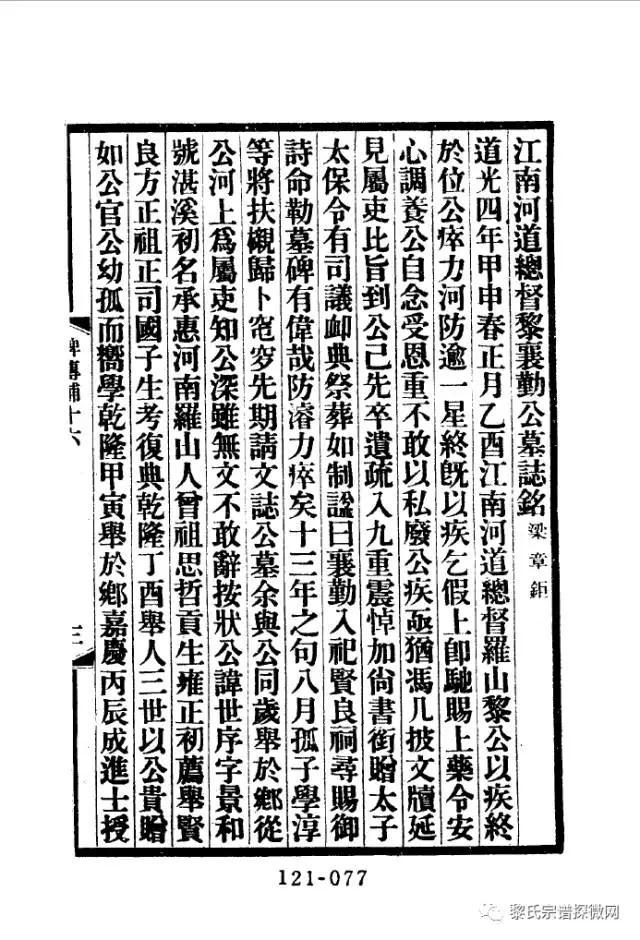 江南河道總督黎襄勤公墓誌銘 梁章鉅
道光四年甲申春正月乙酉江南河道總督羅山黎公以疾終
於位公瘁力河防逾一星終旣以疾乞假上卽馳賜上藥令安
心調養公自念受恩重不敢以私廢公疾亟猶馮几披文牘延
見屬吏比旨到公已先卒遺疏入九重震悼加尙書銜贈太子
太保令有司議卹典祭葬如制諡曰襄勤入祀賢良祠尋賜御
詩命勒墓碑有偉哉防濬力瘁矣十三年之句八月孤子學淳
等將扶櫬歸卜窀穸先期請文誌公墓余與公同歲舉於鄉從
公河上爲屬吏知公深雖無文不敢辭按狀公諱世序字景和
號湛溪初名承惠河南羅山人曾祖思哲貢生雍正初薦舉賢
良方正祖正司國子生考復典乾隆丁酉舉人三世以公貴贈
如公官公幼孤而嚮學乾隆甲寅舉於鄉嘉慶丙辰成進士授
碑傳補十六
三
121-077
黎氏宗谱探微网